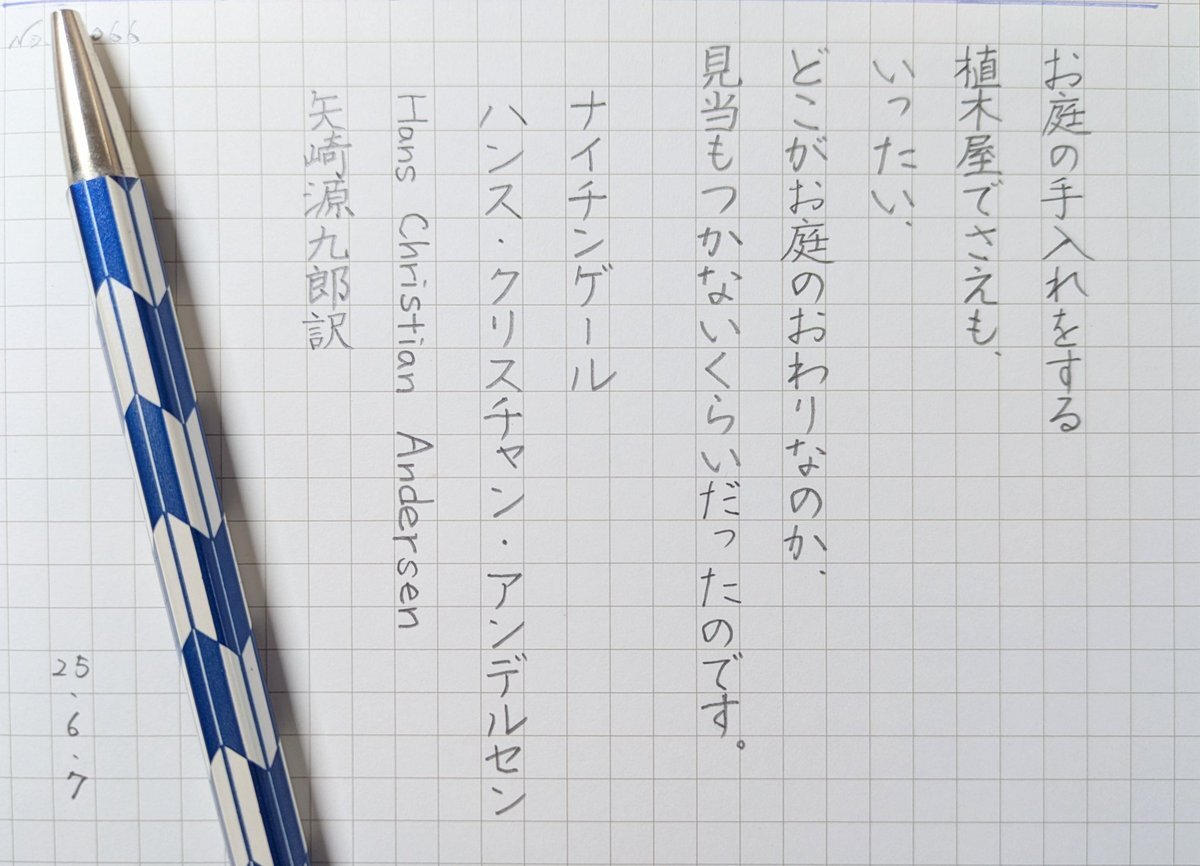 お庭の手入れをする
植木屋でさえも、
いったい、
どこがお庭のおわりなのか、
見当もつかないくらいだったのです。
ナイチンゲール
ハンス・クリスチャン・アンデルセン
Hans Christian Andersen
矢崎源九郎訳
25.6.7